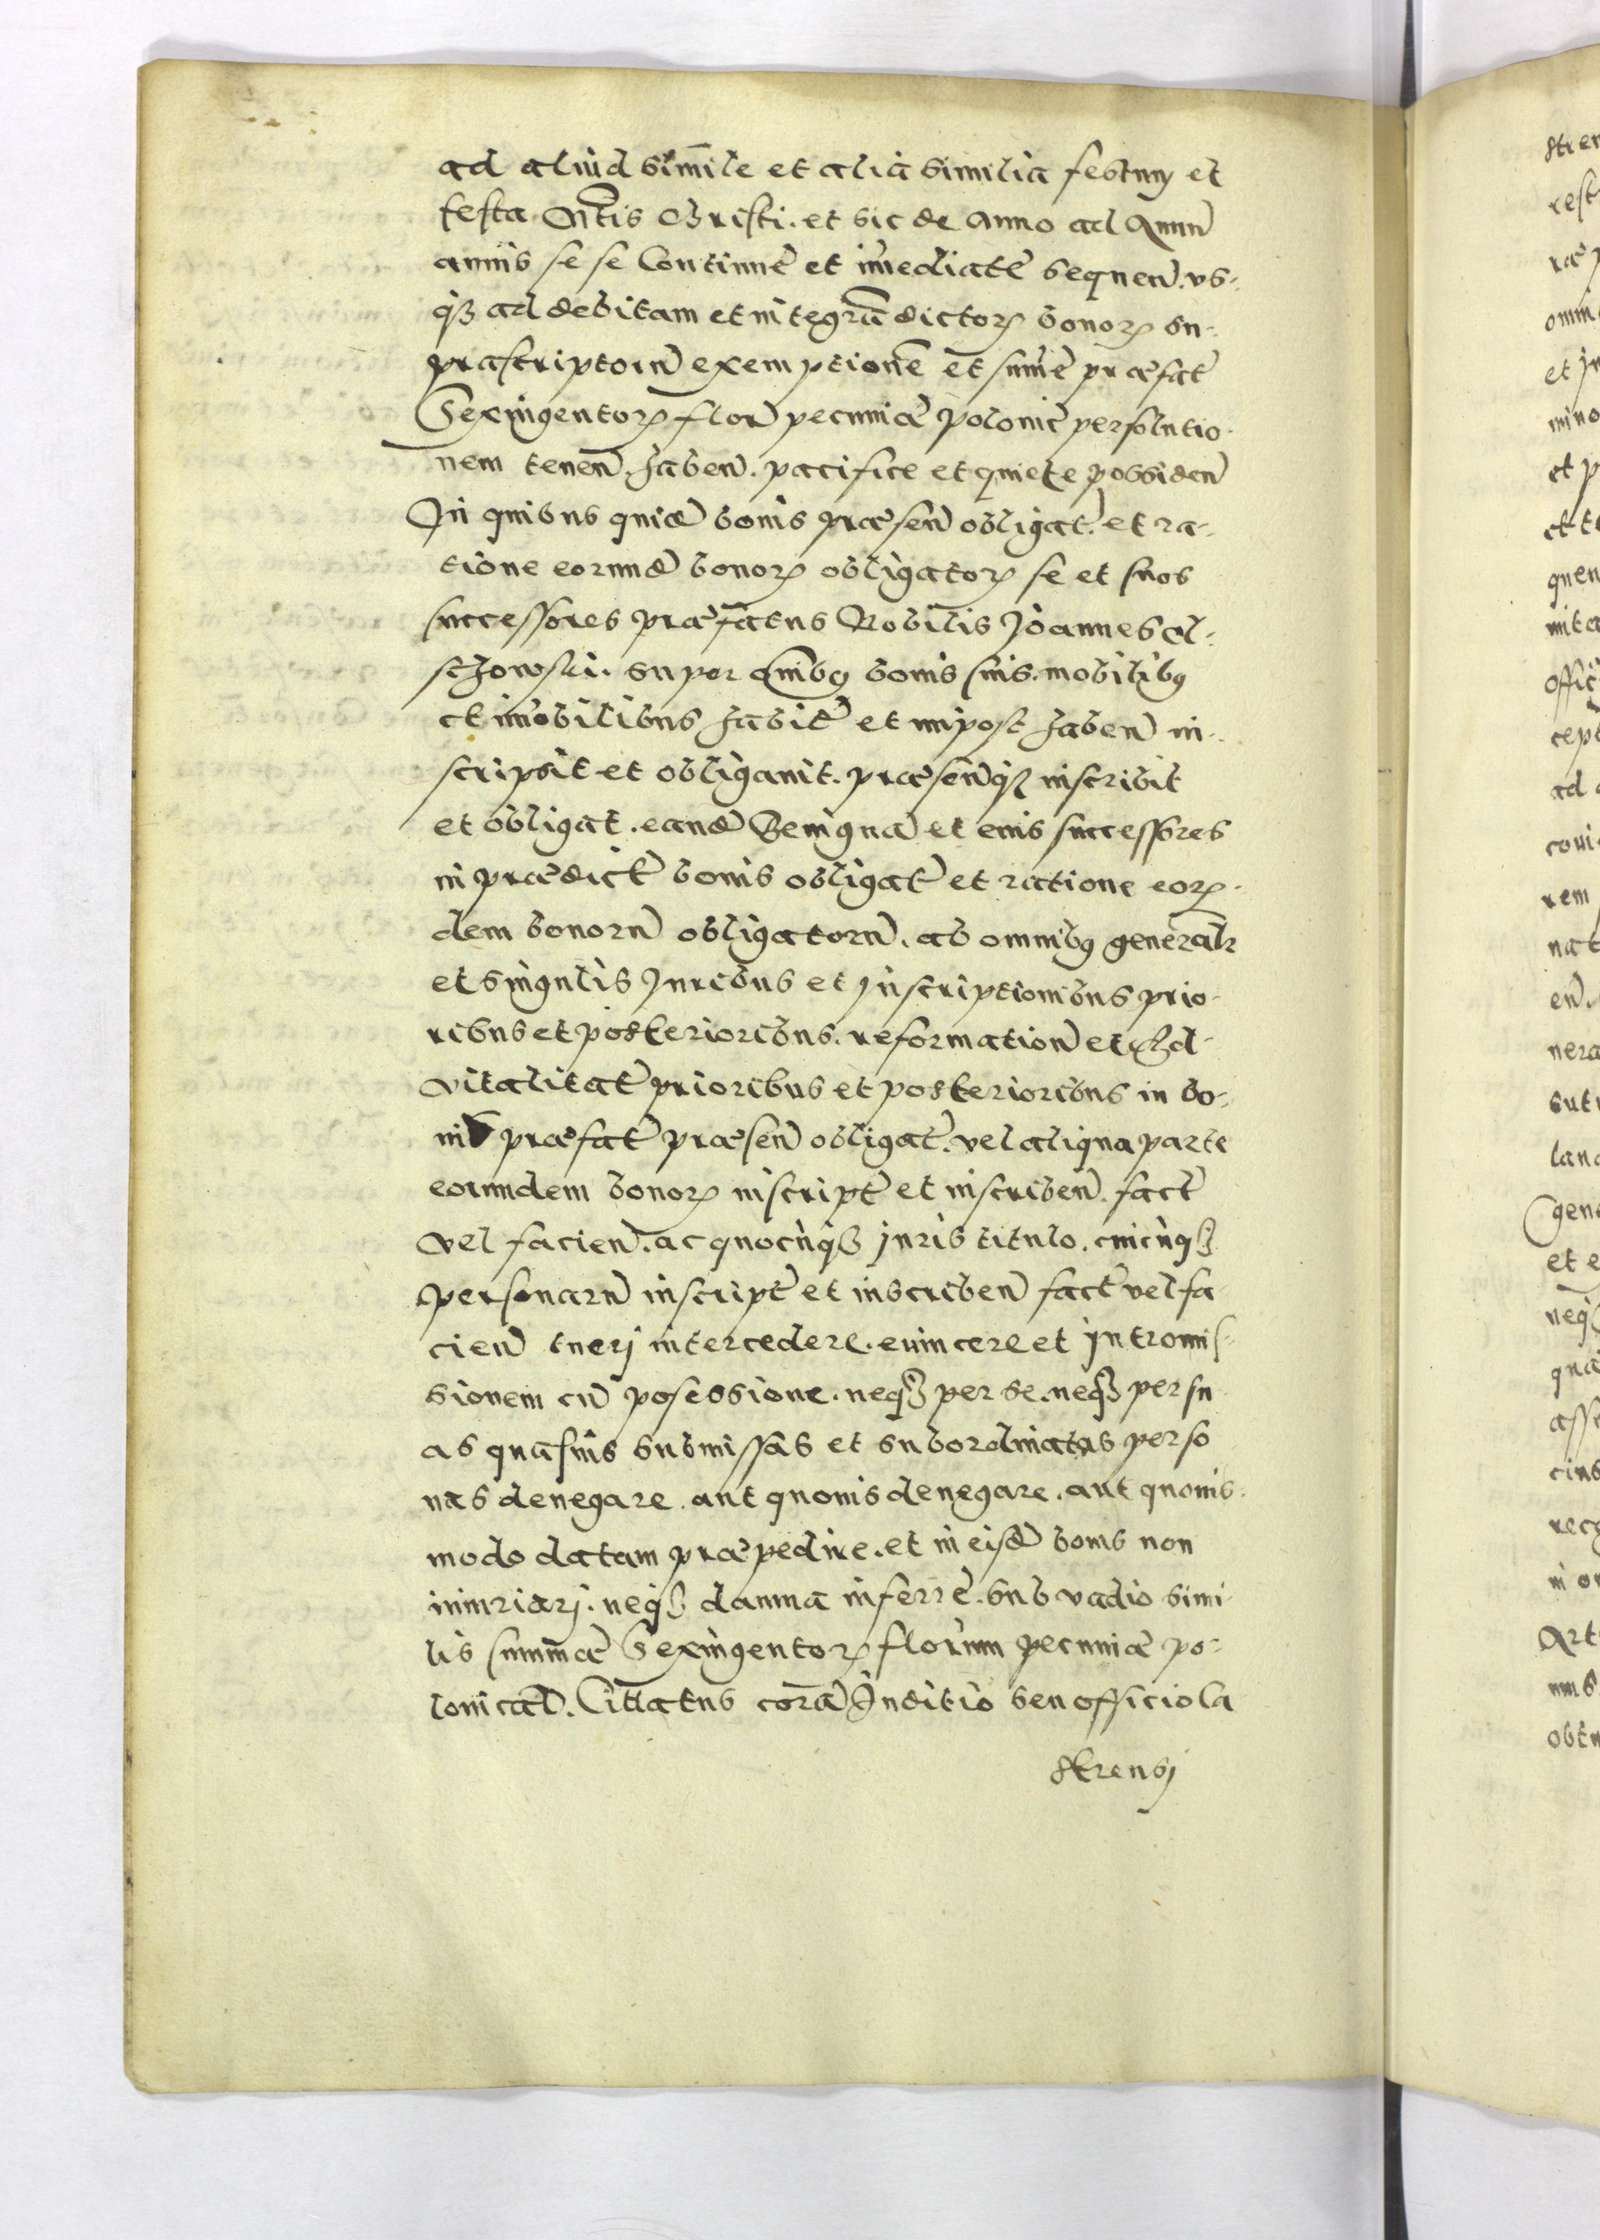 ad aliud simile et alia similia festum et
festa Ntis Christi. et sic de Anno ad Annũ
annis se se Continuẽ et imediatẽ sequeñ. us-
q3 ad debitam et integrã dictoꝝ bonoꝝ su-
prascriptorũ exemptionẽ et sumẽ præfat̃
Sexingentoꝝ floñ pecuniæ polonic̃ persolutio-
nem teneñ. habeñ. pacifice et quiete possideñ
In quibus quidẽ bonis præseñ obligat̃. et ra-
tione eorundẽ bonoꝝ obligatoꝝ se et suos
successores præfatus Nobilis Joannes Ol-
schowski. super omibꝰ bonis suis. mobilibꝰ
et imobilibus habit̃ et impost habeñ in-
scripsit et obligauit. præsenq3 inscribit
et obligat. eandẽ Benignã et eius successores
in prædict̃ bonis obligat̃ et ratione eoꝝ-
dem bonorũ obligatorũ. ab omnibꝰ generalr
et singulis Juribus et Inscriptionibus prio-
ribus et posterioribus. reformatioñ et Ad-
vitalitat̃ prioribus et posterioribus in bo-
nis præfat̃ præseñ obligat̃. vel aliqua parte
eorundem bonoꝝ inscript̃ et inscribeñ. fact̃
vel facieñ. ac quocũq3 juris titulo. cuicũq3
personarũ inscript̃ et inscribeñ fact̃ vel fa-
cieñ tuerj intercedere. euincere et Intromis-
sionem cũ posessione. neq3 per se. neq3 per su
as quasuis submissas et subordinatas perso
nas denegare. aut quouis denegare. aut quouis-
modo datam præpedire. et in eisdẽ bonis non
iniuriarj. neq3 damna inferre. sub vadio simi-
lis summæ Sexingentoꝝ florium pecuniæ po-
lonical̃. Cittatus corã Juditio seu officio Ca
strensj